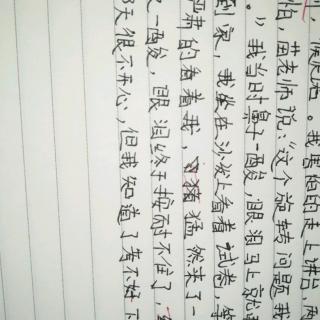 我害怕的走上讲台，两
怕，曲老师说：“这个旋转问题我
。”我当时鼻子一酸，眼泪马上就
到家，我坐在沙发上看着试卷，等
严肃的看着我，猛然来了一
一酸，眼泪终于按耐不住了，
天很不开心，但我知道了考不好下